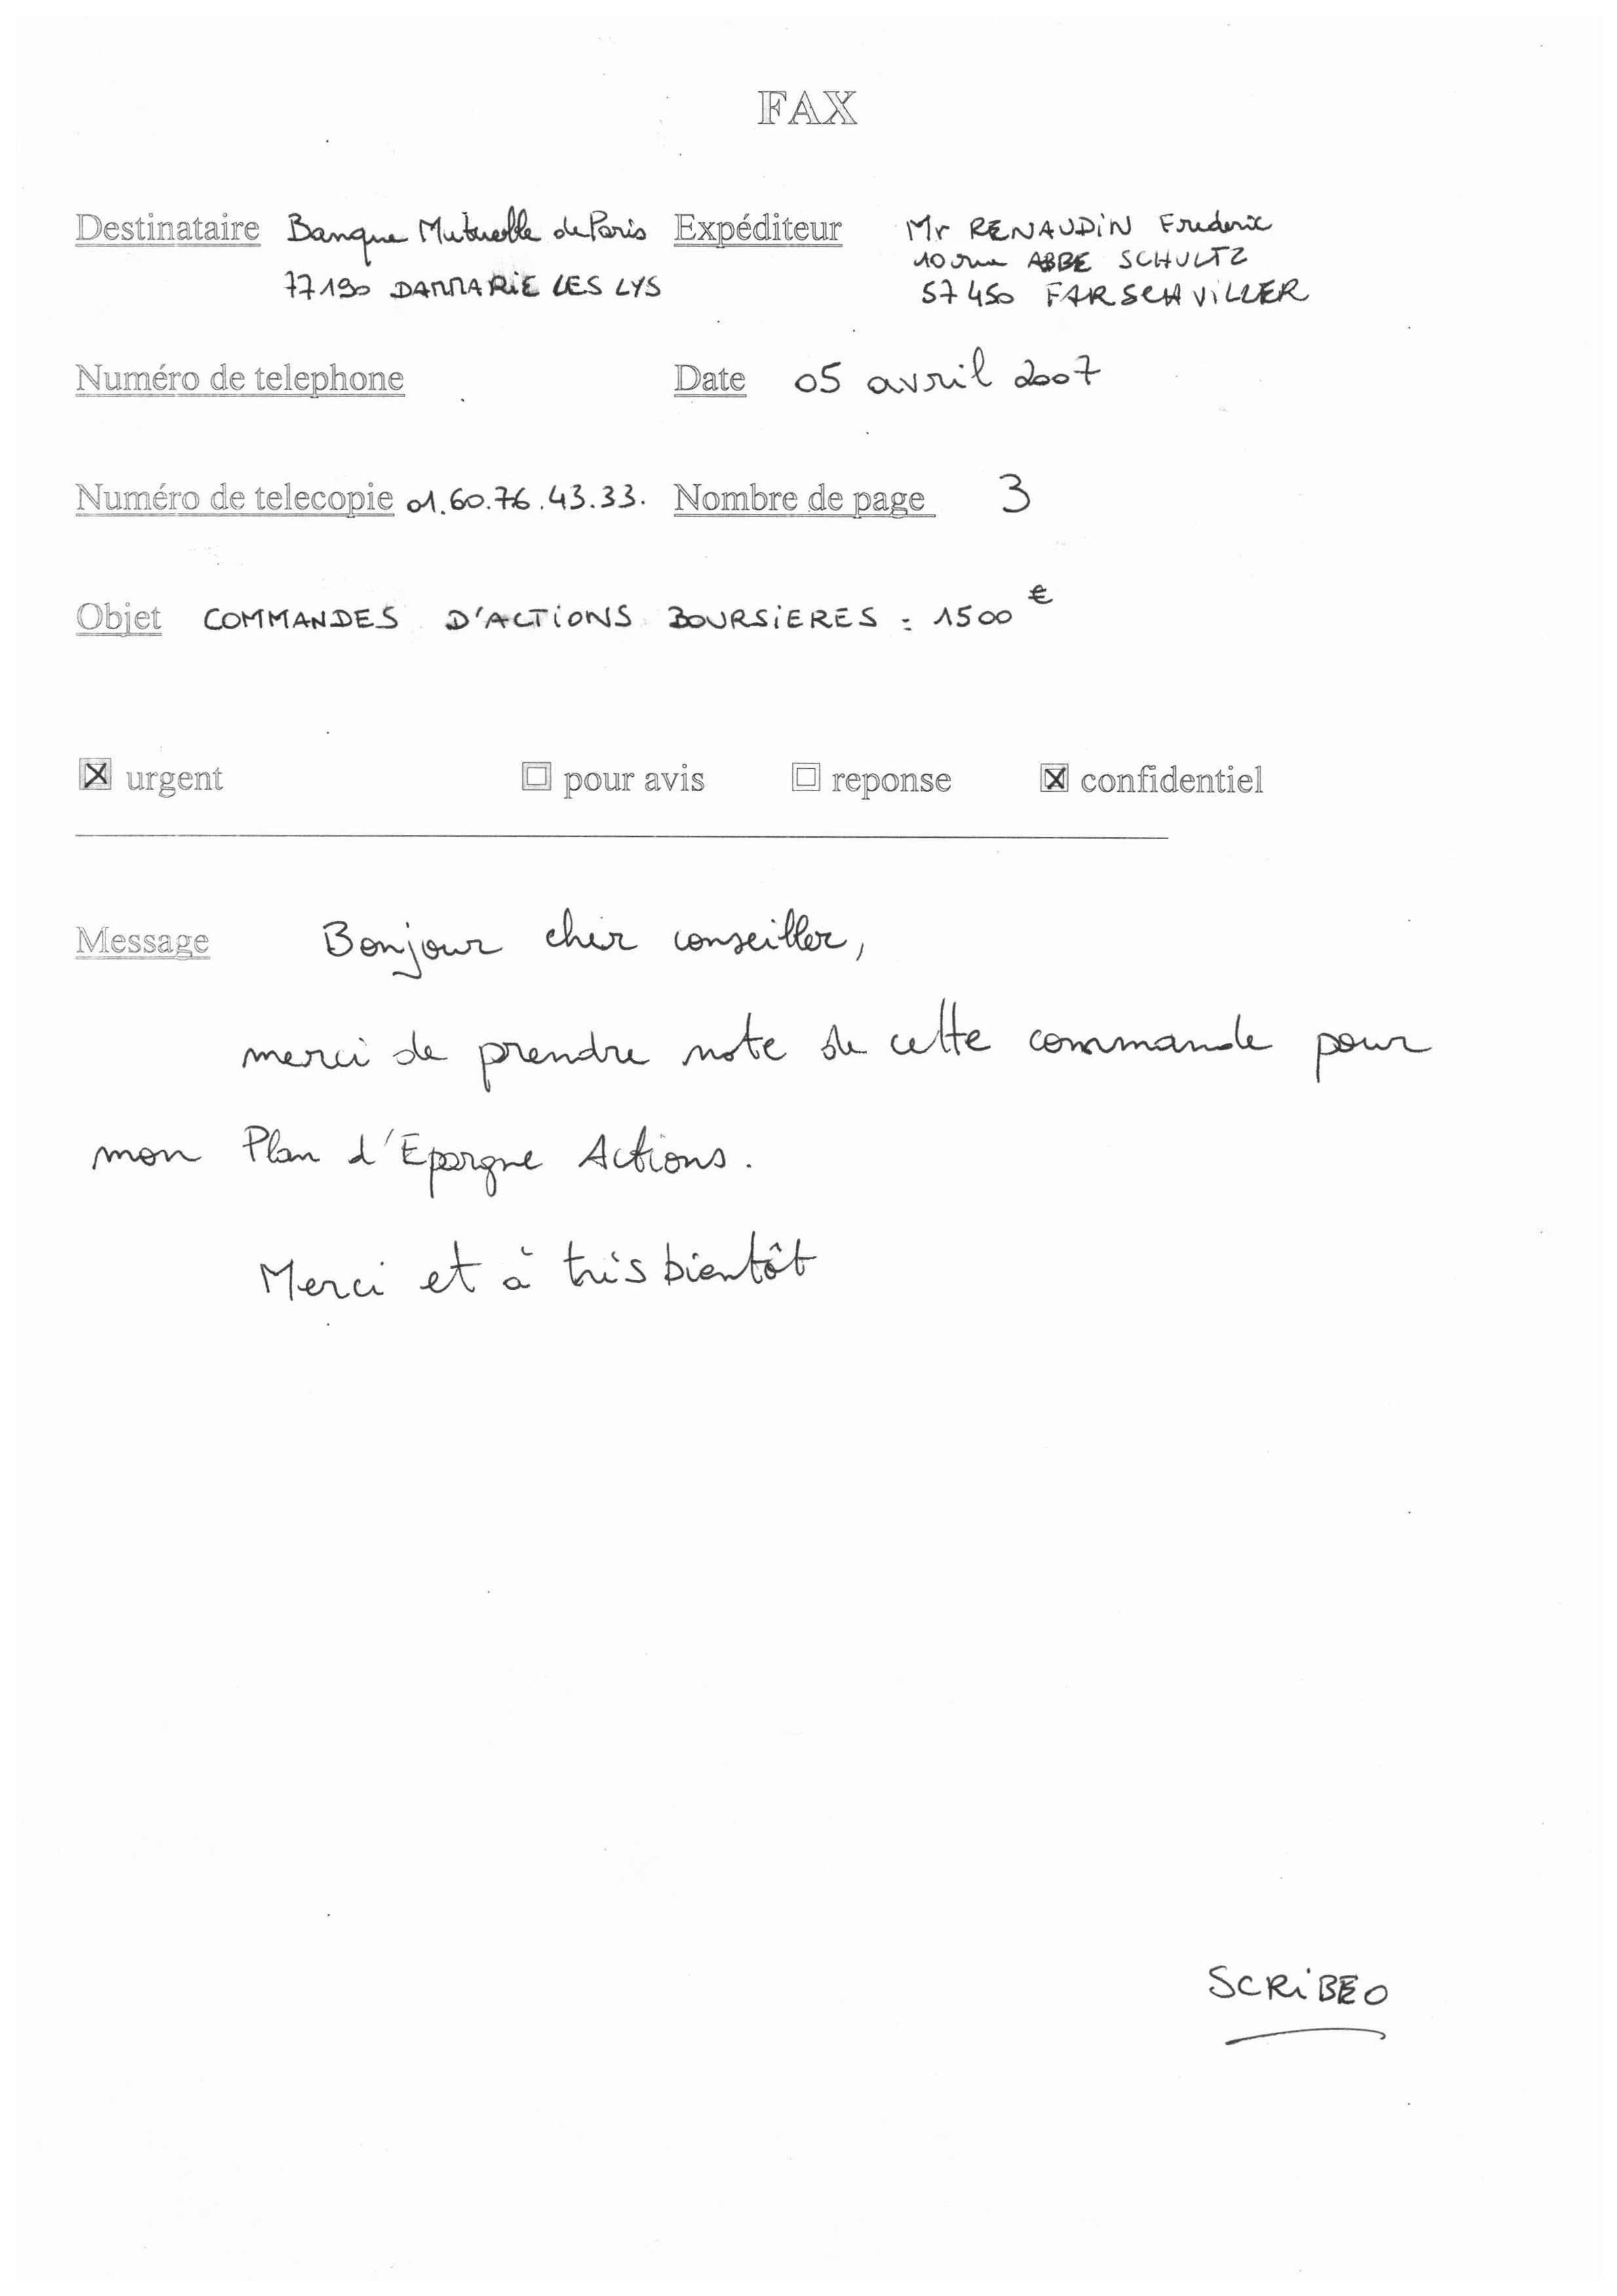 FAX
Destinataire Banque Mutuelle de Paris Expéditeur Mr RENAUDIN Frederic
10 rue ABBE SCHULTZ
77190 DAMMARIE LES LYS 57450 FARSCHVILLER
Numéro de telephone Date 05 avril 2007
Numéro de telecopie 01.60.76.43.33. Nombre de page 3
Objet COMMANDES D'ACTIONS BOURSIERES : 1500 €
☒ urgent ☐ pour avis ☐ reponse ☒ confidentiel
Message Bonjour cher conseiller,
merci de prendre note de cette commande pour
mon Plan d'Epargne Actions.
Merci et à très bientôt
SCRIBEO